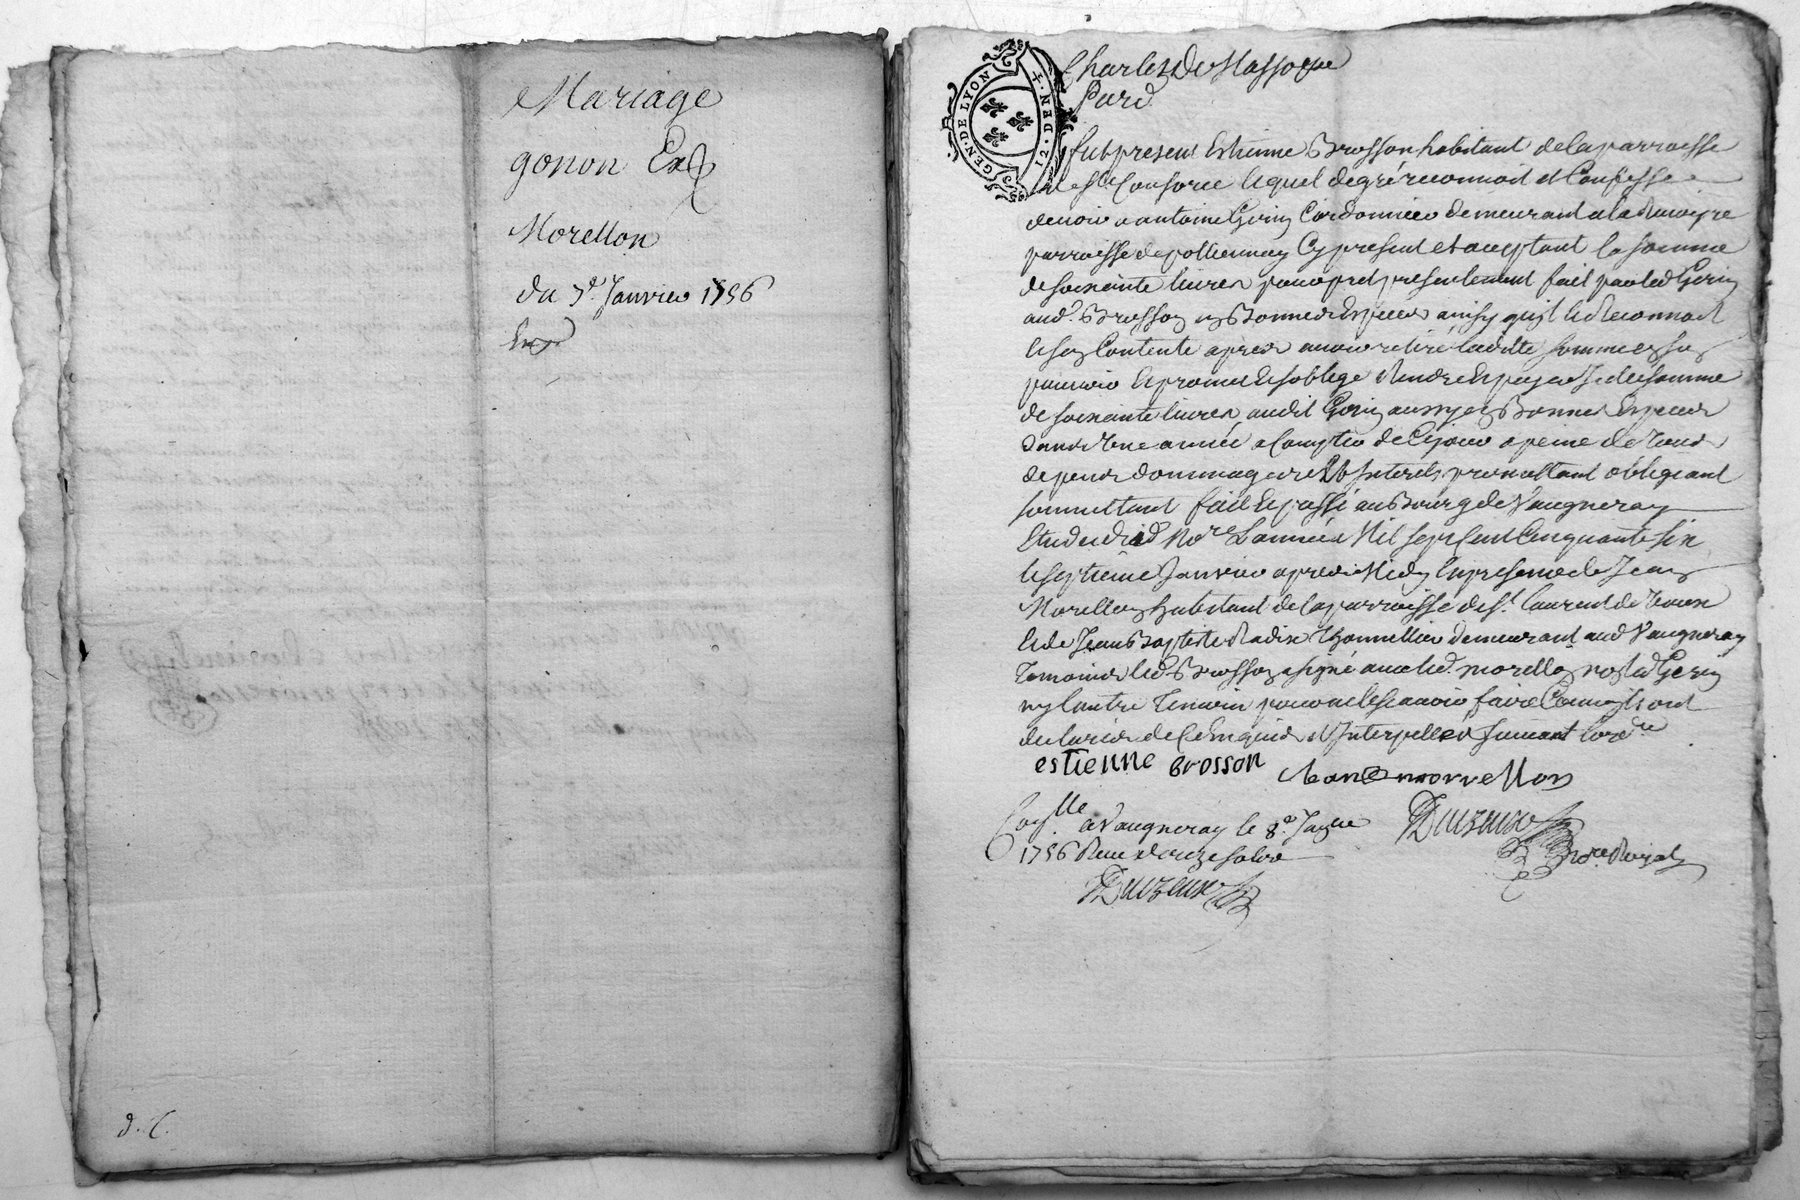 Mariage
gonon Et
Morellon
du 7e. Janvier 1756
d. C.
GEN. DE LYON
12 DEN.
Charles De Massoque
Furd.
fut present Estienne Brosson habitant de la parroisse
de Ste Consorce lequel de gré reconnoit et Confesse
devoir a antoine Gerin Cordonnier demeurant a la
parroisse de pollionnay Cy present et acceptant la somme
de soixante livres pour pret presentement fait par led Gerin
aud. Brosson en Bonnes Especes ainsy qu'il le Reconnoit
le Contente apres avoir retiré laditte somme
promet et s'oblige Rendre Et payer somme
de soixante livres audit Gerin aussy en Bonnes Especes
dans Une année a Compter de Ce jour a peine de Tous
depens dommages et Interets, promettant obligeant
soumettant fait Et passé au Bourg de Vaugneray
Etude dud Nore L'année Mil sept Cent Cinquante Six
le septieme Janvier apres Midy En presence de Jean
Morellon habitant de la parroisse de St. laurent de Vaux
Et de Jean Baptiste Radix Thonnellier demeurant aud Vaugneray
Temoins led Brosson a signé avec led. morellon non led Gerin
ny l'autre Temoin pour ne le scavoir faire Comme ils ont
declaré de Ce Enquis et Interpellés suivant l'ordce
estienne brosson Jean morrellon
Conlle a Vaugneray le 8e. Janvie
1756 Reçu douze sols
Nore Royal